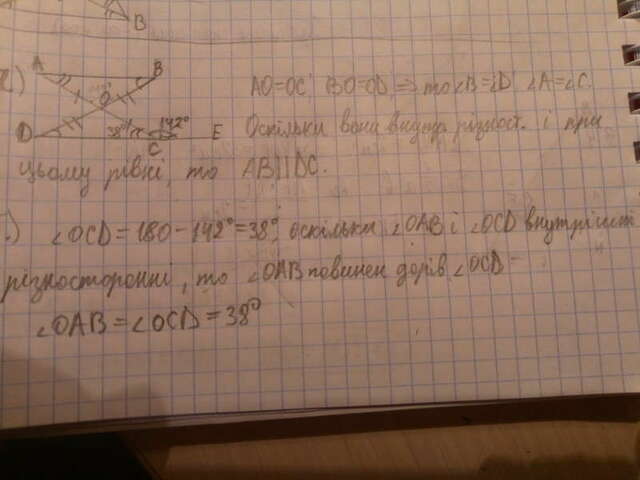 B
2)
A B
O
D 38° 142° E
C
AO=OC, BO=OD, => то ∠B=∠D ∠A=∠C.
Оскільки вони внутр. різност. і при
цьому рівні, то AB||DC.
∠OCD=180-142°=38°, оскільки ∠OAB і ∠OCD внутрішні
різносторонні, то ∠OAB повинен дорів. ∠OCD -
∠OAB=∠OCD=38°